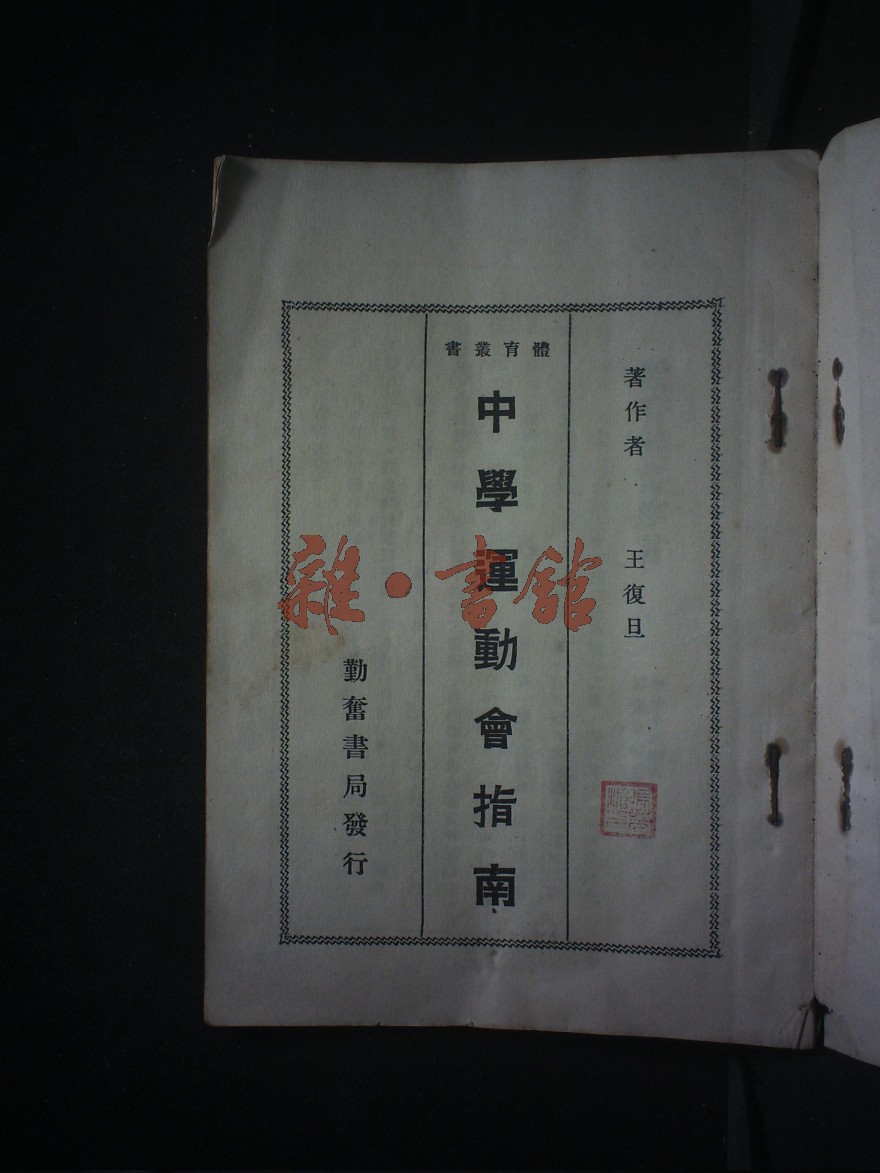 著作者 王復旦
體育叢書
中學運動會指南
勤奮書局發行
雜·書館